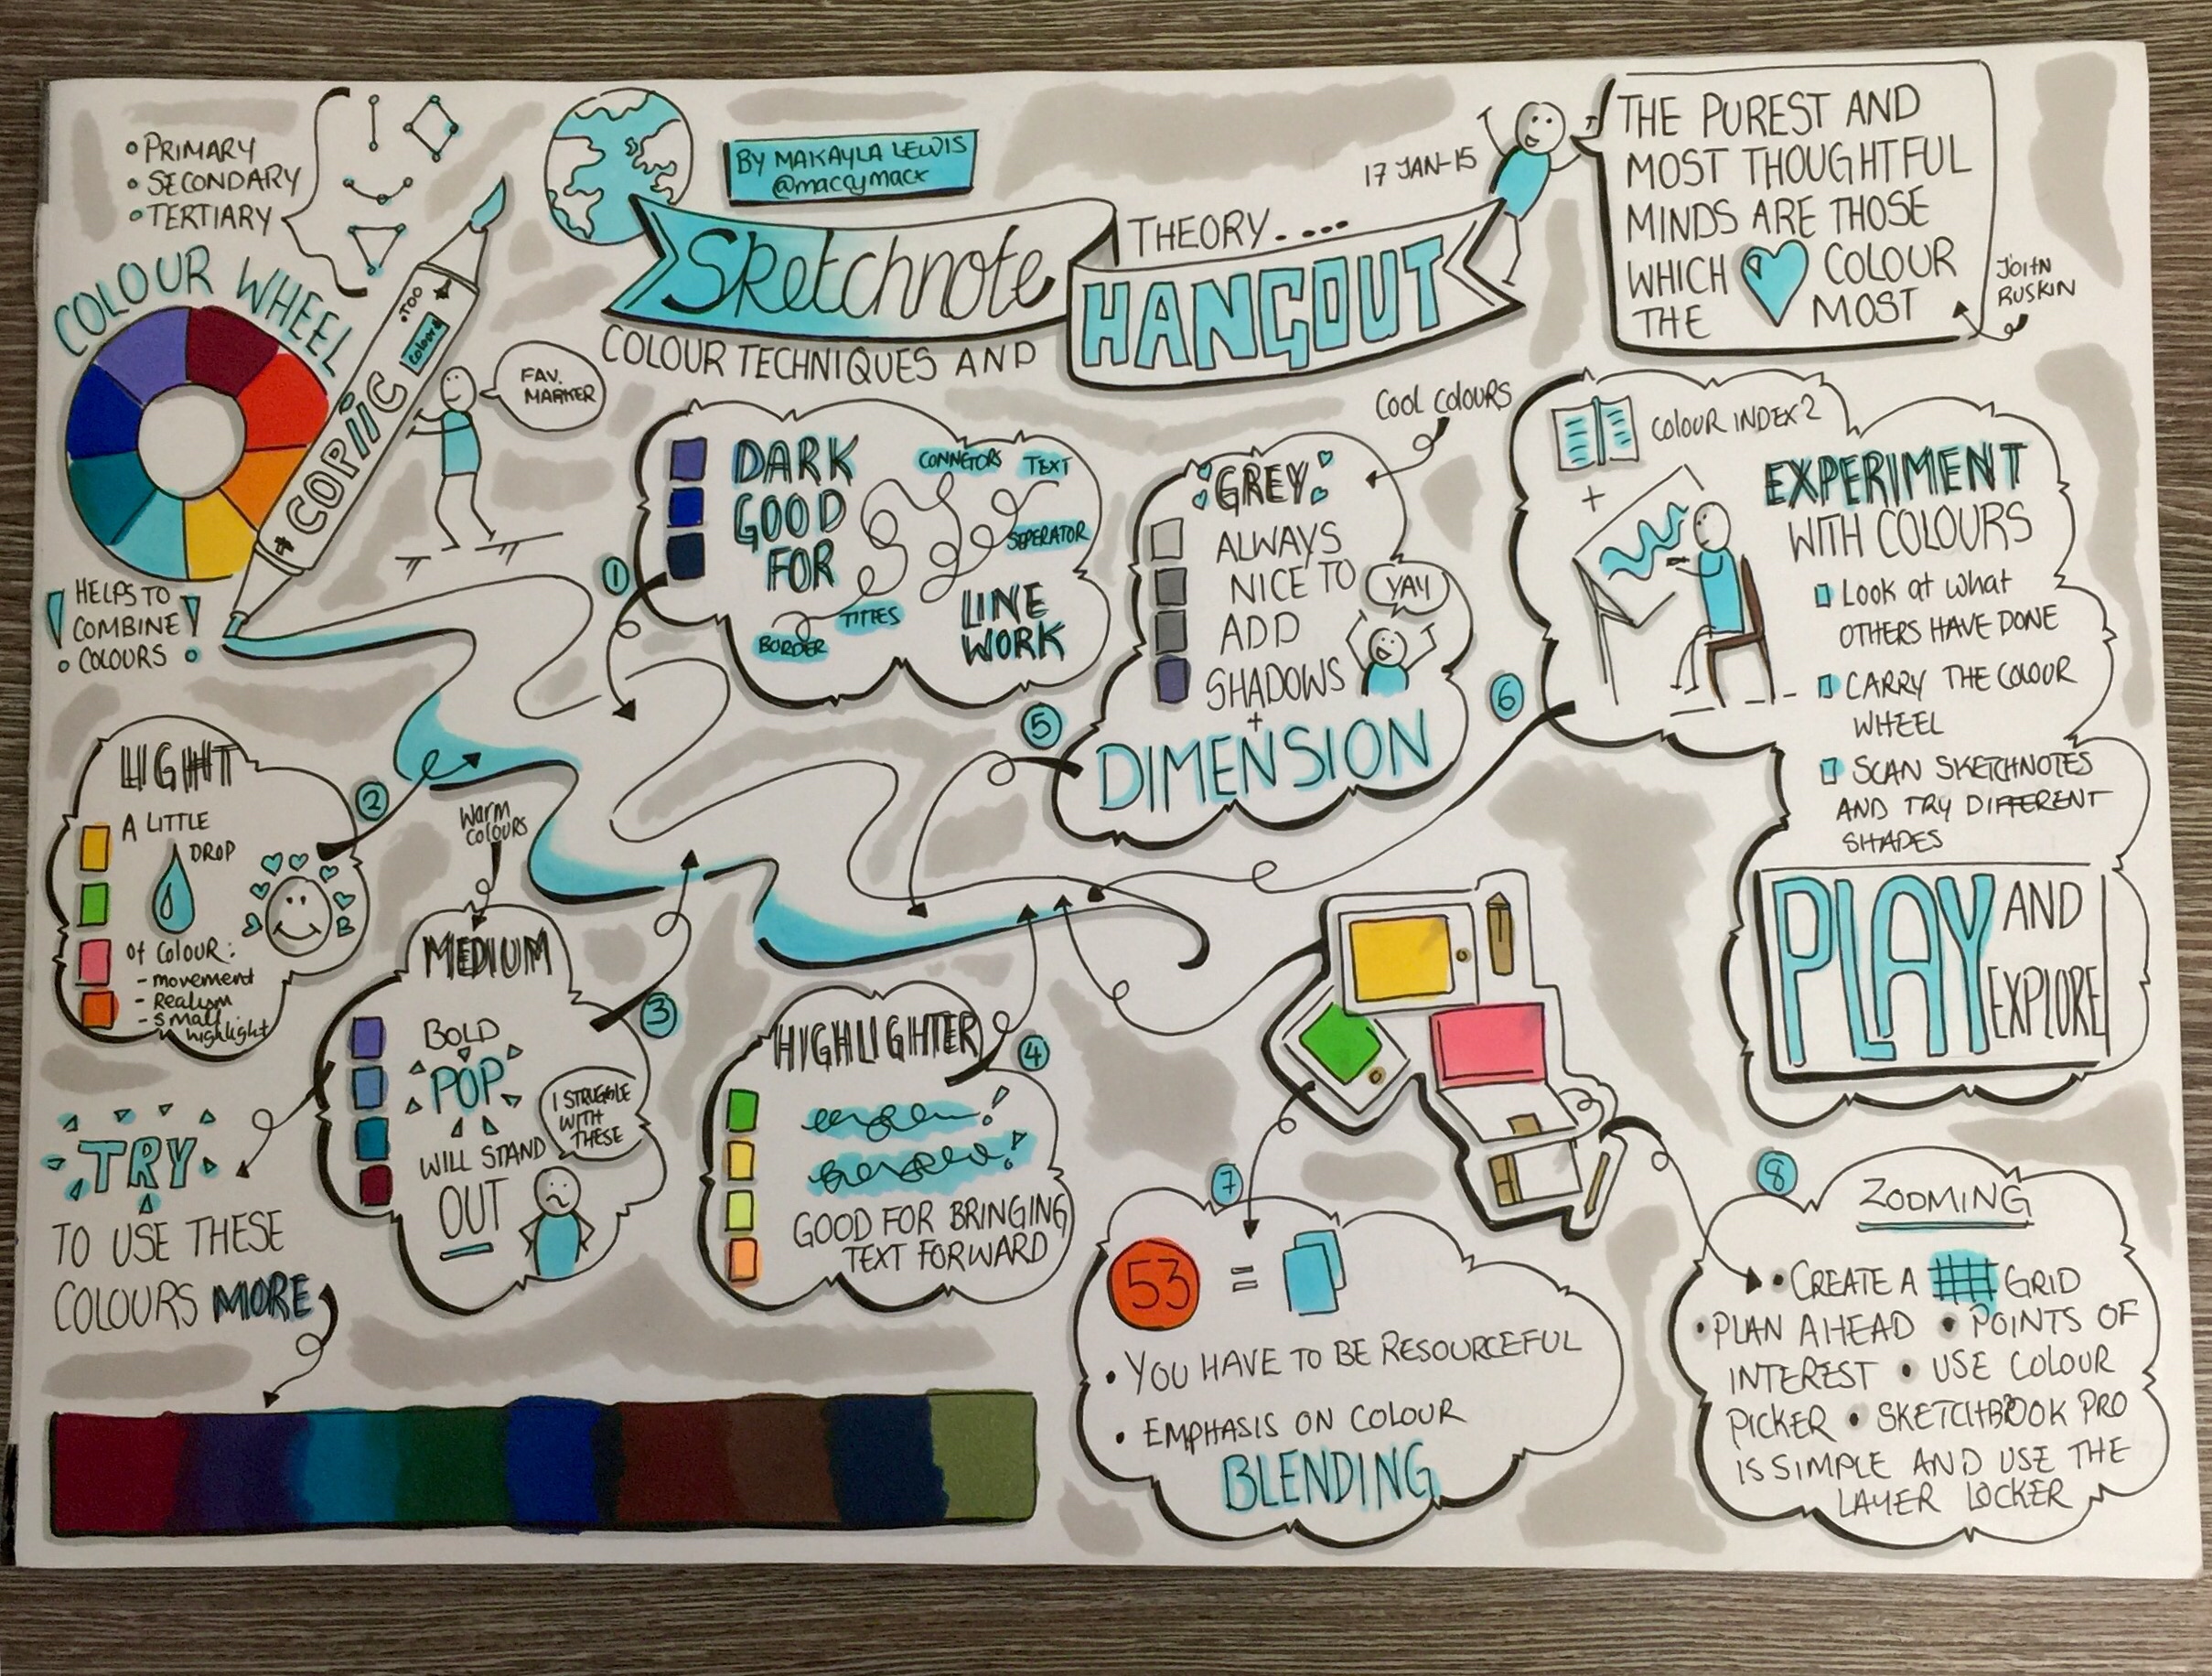 • PRIMARY
• SECONDARY
• TERTIARY
COLOUR WHEEL
HELPS TO
COMBINE
COLOURS
COPIIC
TOO
COLOURS
FAV.
MARKER
BY MAKAYLA LEWIS
@maccymacx
Sketchnote
HANGOUT
COLOUR TECHNIQUES AND
THEORY....
17 JAN-15
THE PUREST AND
MOST THOUGHTFUL
MINDS ARE THOSE
WHICH COLOUR
THE MOST
JOHN
RUSKIN
1
DARK
GOOD
FOR
LINE
WORK
CONNETORS
TEXT
SEPERATOR
TITLES
BORDER
2
LIGHT
A LITTLE
DROP
of COLOUR:
- movement
- Realism
- small
highlight
Warm
COLOURS
3
MEDIUM
BOLD
POP
WILL STAND
OUT
I STRUGGLE
WITH
THESE
TRY
TO USE THESE
COLOURS MORE
4
HIGHLIGHTER
GOOD FOR BRINGING
TEXT FORWARD
5
Cool COLOURS
GREY
ALWAYS
NICE TO
ADD
SHADOWS
+
DIMENSION
YAY
6
COLOUR INDEX 2
+
EXPERIMENT
WITH COLOURS
Look at what
OTHERS HAVE DONE
CARRY THE COLOUR
WHEEL
SCAN SKETCHNOTES
AND TRY DIFFERENT
SHAPES
PLAY AND
EXPLORE
7
53 =
• YOU HAVE TO BE RESOURCEFUL
• EMPHASIS ON COLOUR
BLENDING
8
ZOOMING
• CREATE A GRID
• PLAN AHEAD • POINTS OF
INTEREST • USE COLOUR
PICKER • SKETCHBOOK PRO
IS SIMPLE AND USE THE
LAYER LOCKER